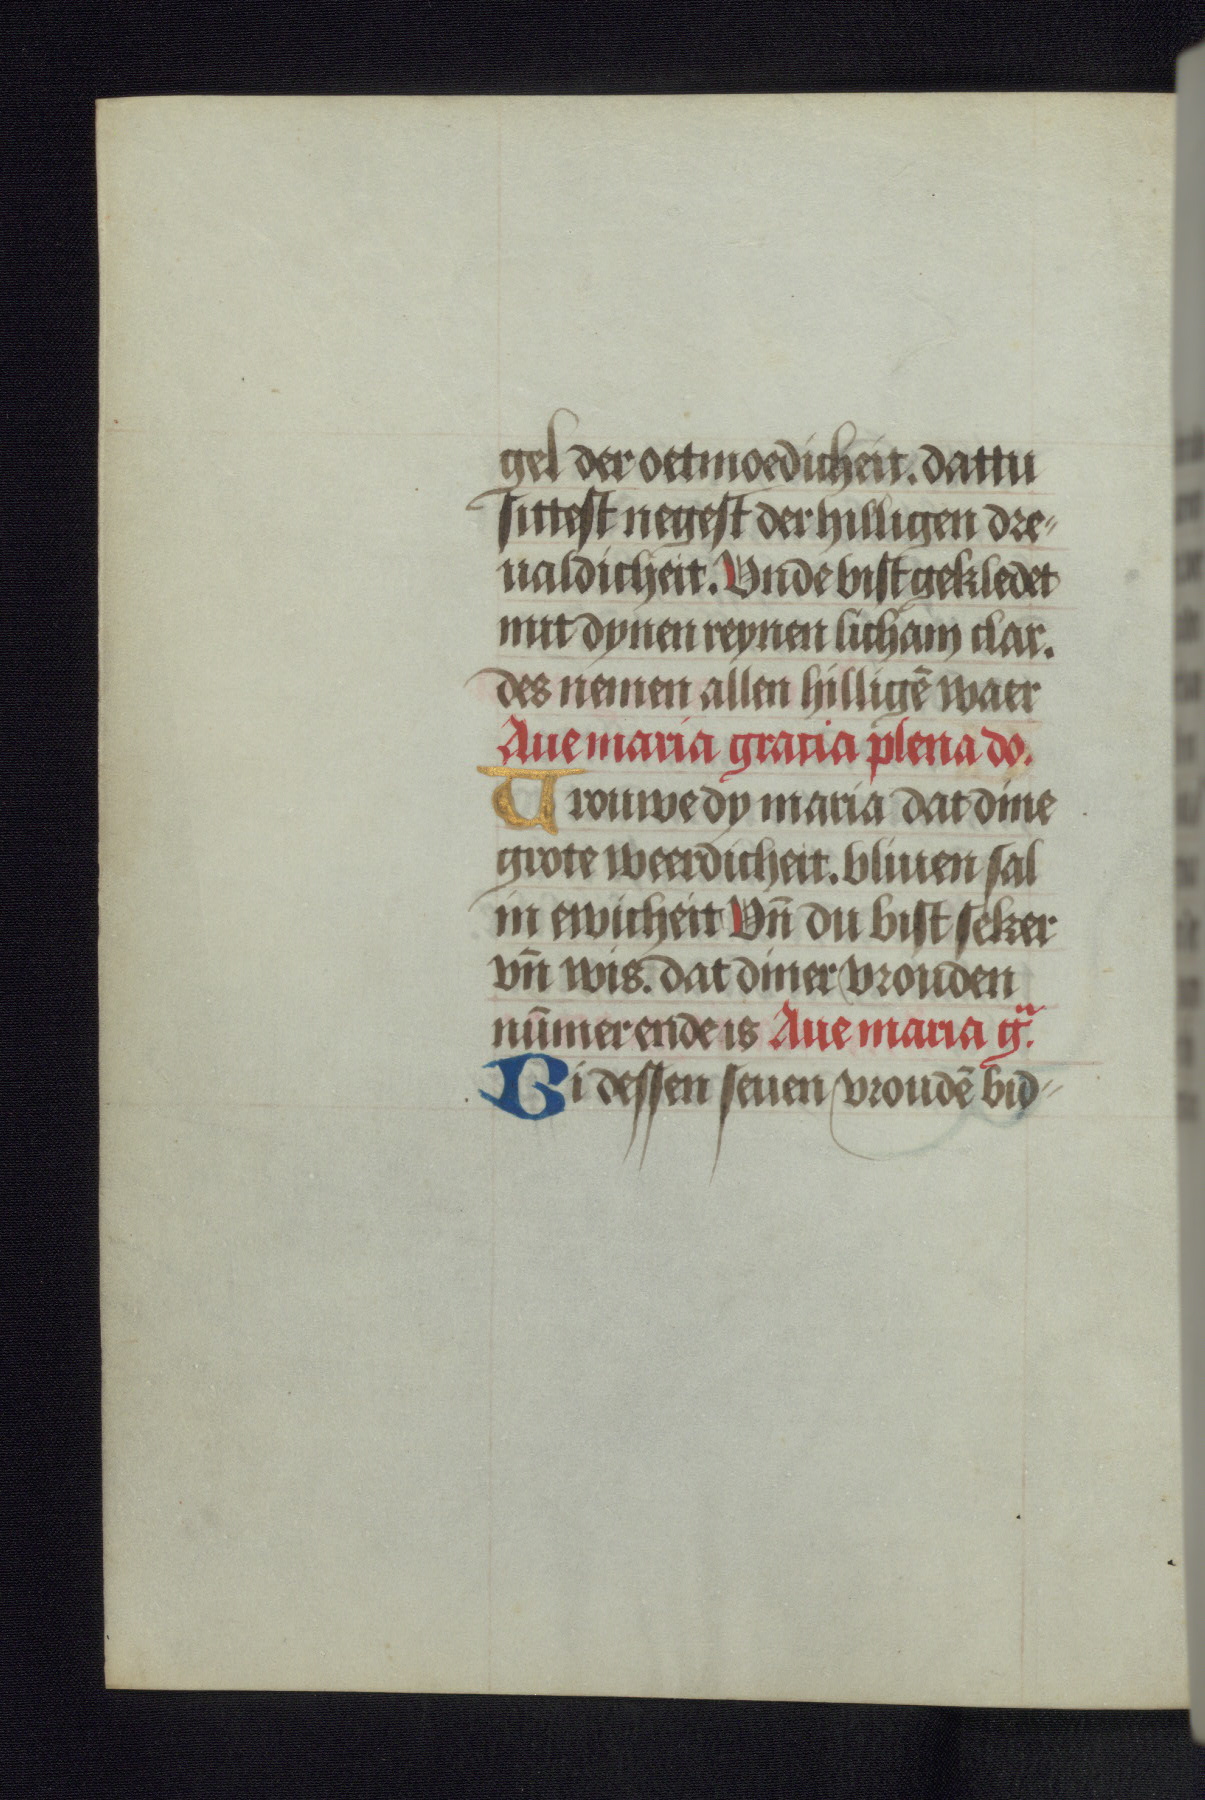 gel der oetmoedicheit. dattu
sittest negest der hilligen dre-
ualdicheit. Vnde bist gekledet
mit dynen reynen licham clar.
des nemen allen hilligē waer
Aue maria gracia plena do.
Vrouwe dy maria dat dine
grote weerdicheit. bliuen sal
in ewicheit Vn̄ du bist seker
vn̄ wis. dat diner vrouden
nūmer ende is Aue maria gᵃ.
Bi dessen seuen vroudē bid-